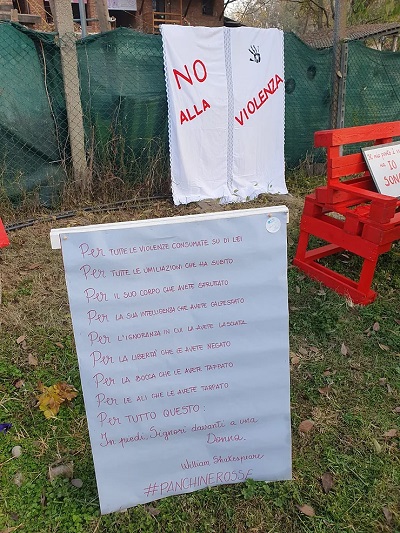 NO
ALLA
VIOLENZA
IO
SONO
Per TUTTE LE VIOLENZE CONSUMATE SU DI LEI
Per TUTTE LE UMILIAZIONI CHE HA SUBITO
Per IL SUO CORPO CHE AVETE SFRUTTATO
Per LA SUA INTELLIGENZA CHE AVETE CALPESTATO
Per L'IGNORANZA IN CUI LA AVETE LASCIATA
Per LA LIBERTA' CHE LE AVETE NEGATO
Per LA BOCCA CHE LE AVETE TAPPATO
Per LE ALI CHE LE AVETE TARPATO
Per TUTTO QUESTO:
In piedi, Signori davanti a una
Donna.
William Shakespeare
#PANCHINEROSSE